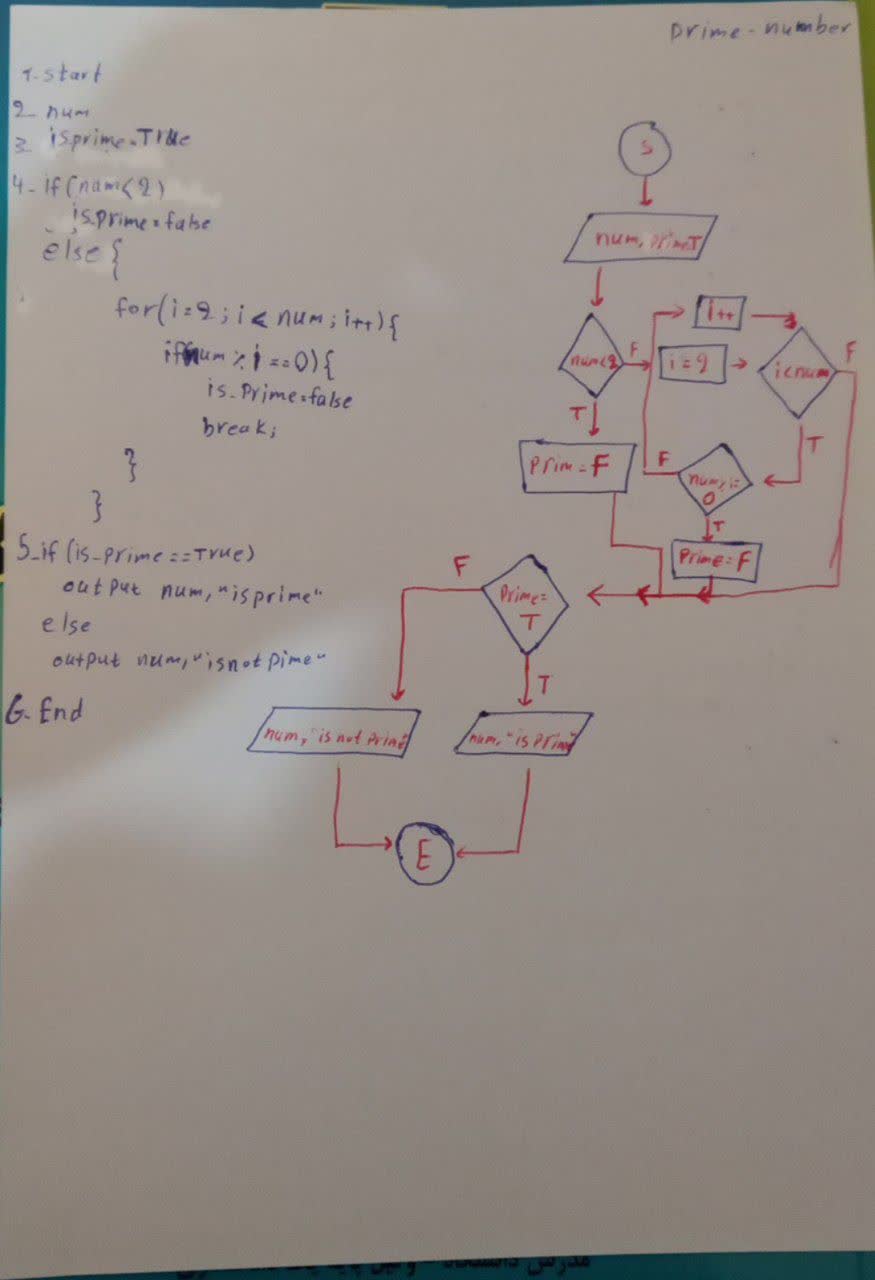 prime - number
1- start
2- num
3- isprime=True
4- if(num<2)
isprime=false
else {
for(i=2;i< num;i++){
if(num % i ==0){
is-Prime=false
break;
}
}
5-if (is-prime==True)
output num,"isprime"
else
output num,"isnotpime"
6- End
S
num, prime.T
num<2
F
T
i++
i=2
i<num
F
T
Prim=F
num%i=
0
F
T
Prime=F
Prime=
T
F
T
num,"is not Prime"
num,"is Prime"
E